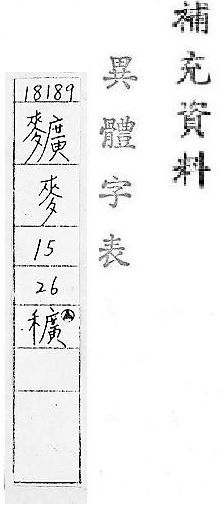 補充資料
異體字表
18189
䵃
麥
15
26
穬